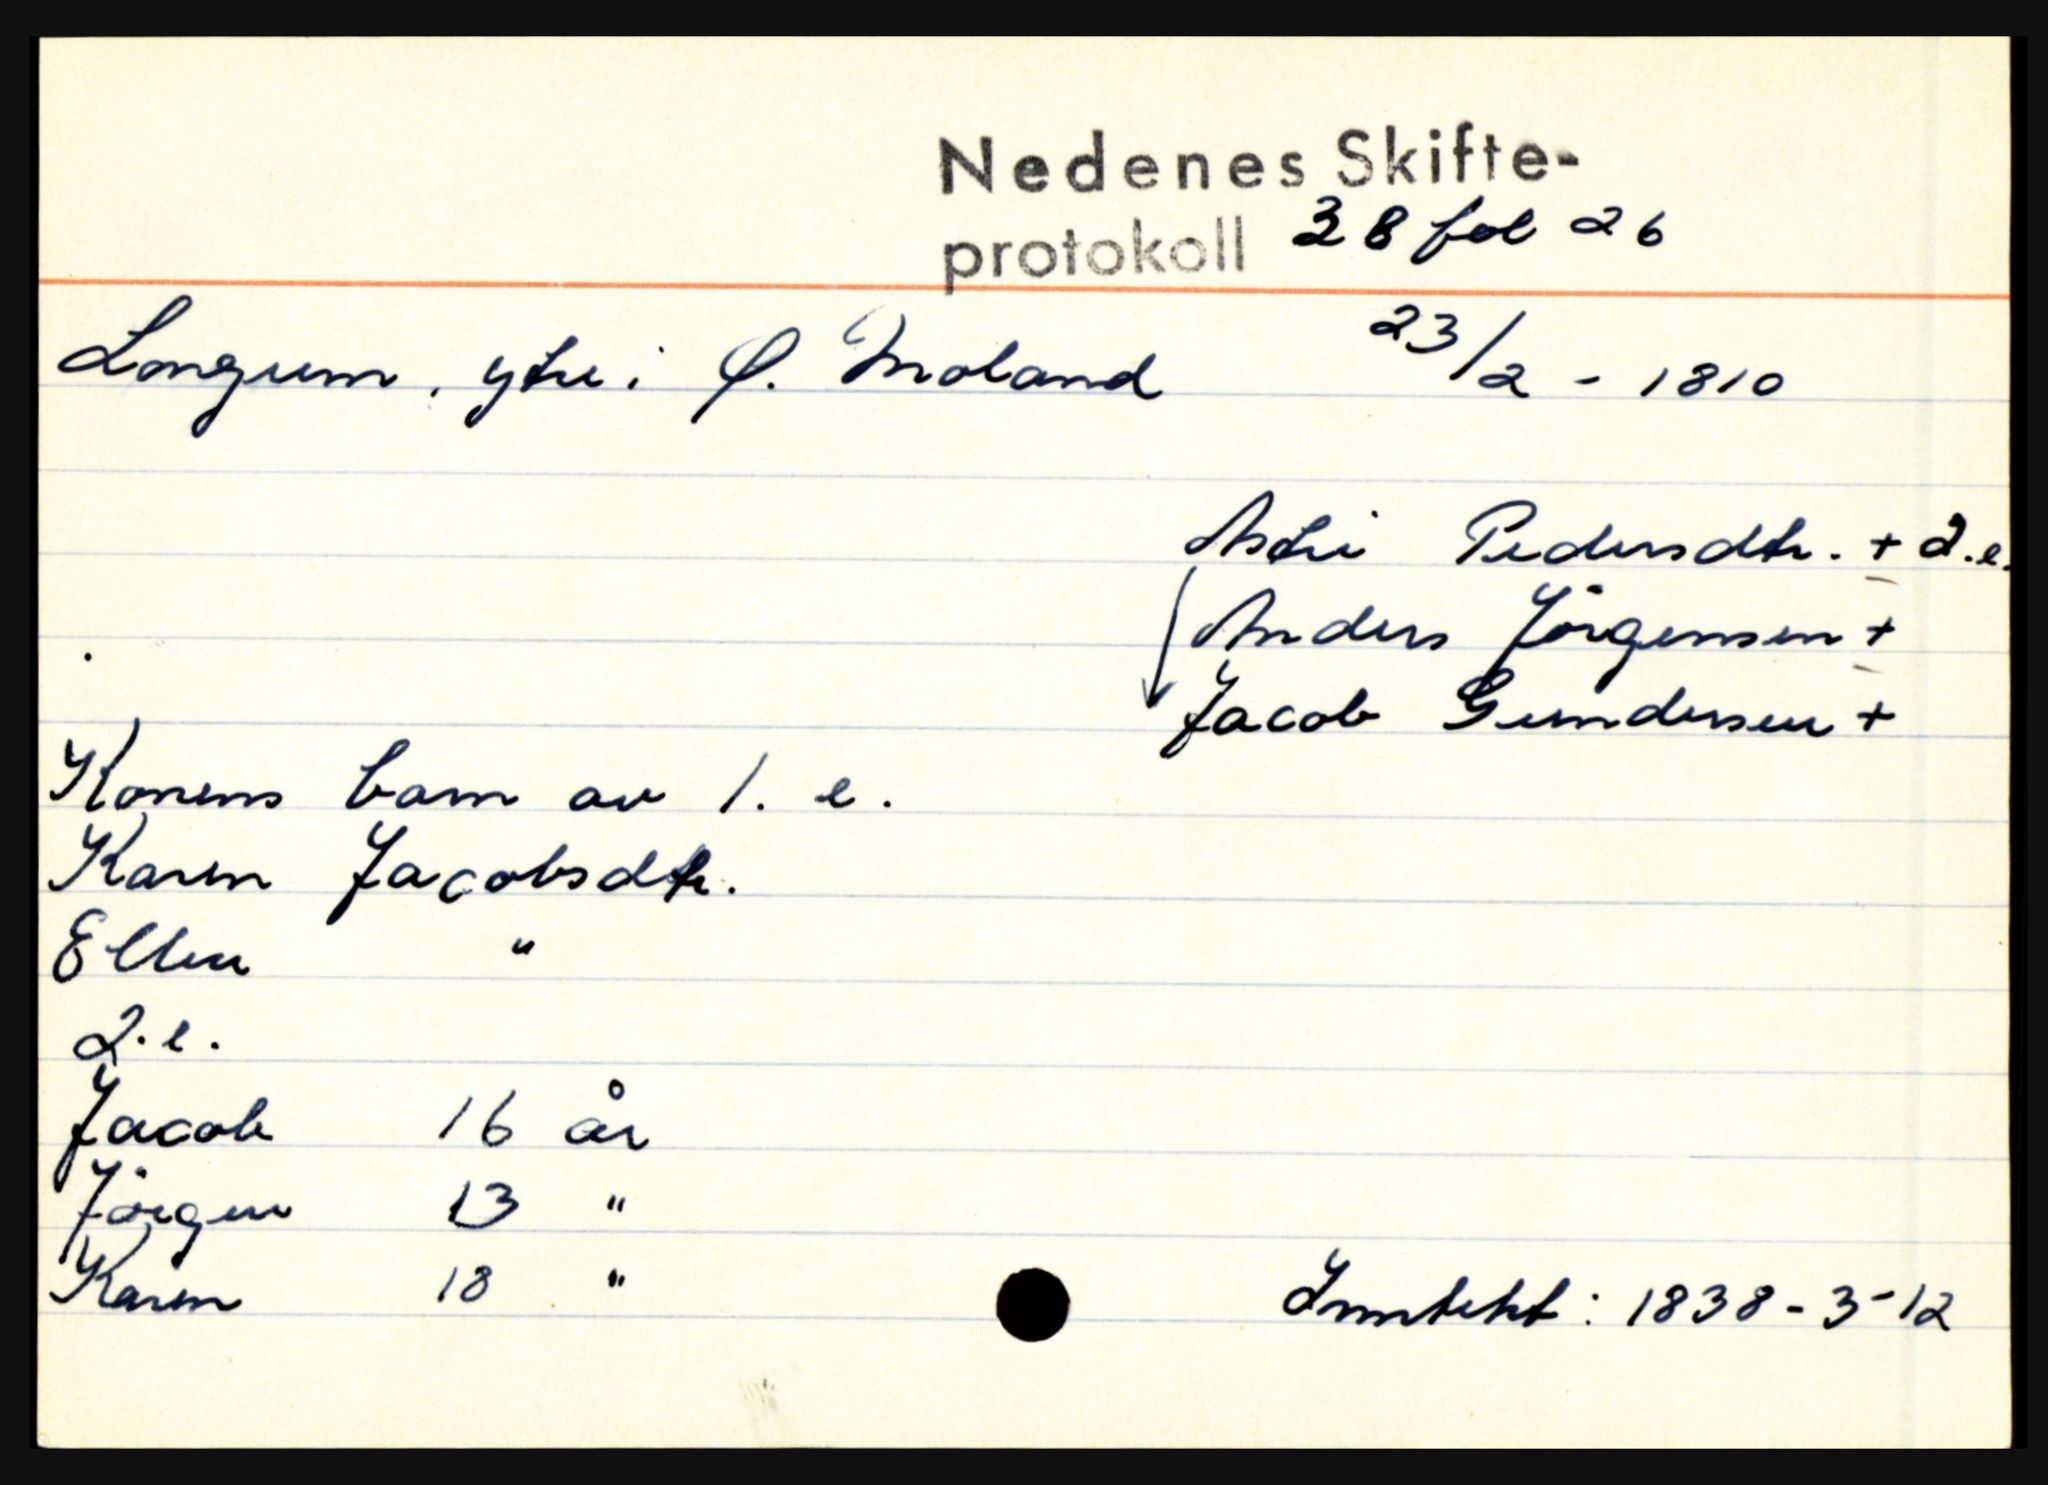 Nedenes Skifte-
protokoll 28 fol 26
Longum, ytre i Ø. Moland 23/2 - 1810
Astri Pedersdtr. + 2.e.
Anders Jörgensen +
Jacob Gundersen +
Konens barn av 1. e.
Karen Jacobsdtr.
Ellen "
2.e.
Jacob 16 år
Jörgen 13 "
Karen 18 "
Inntekt: 1838-3-12